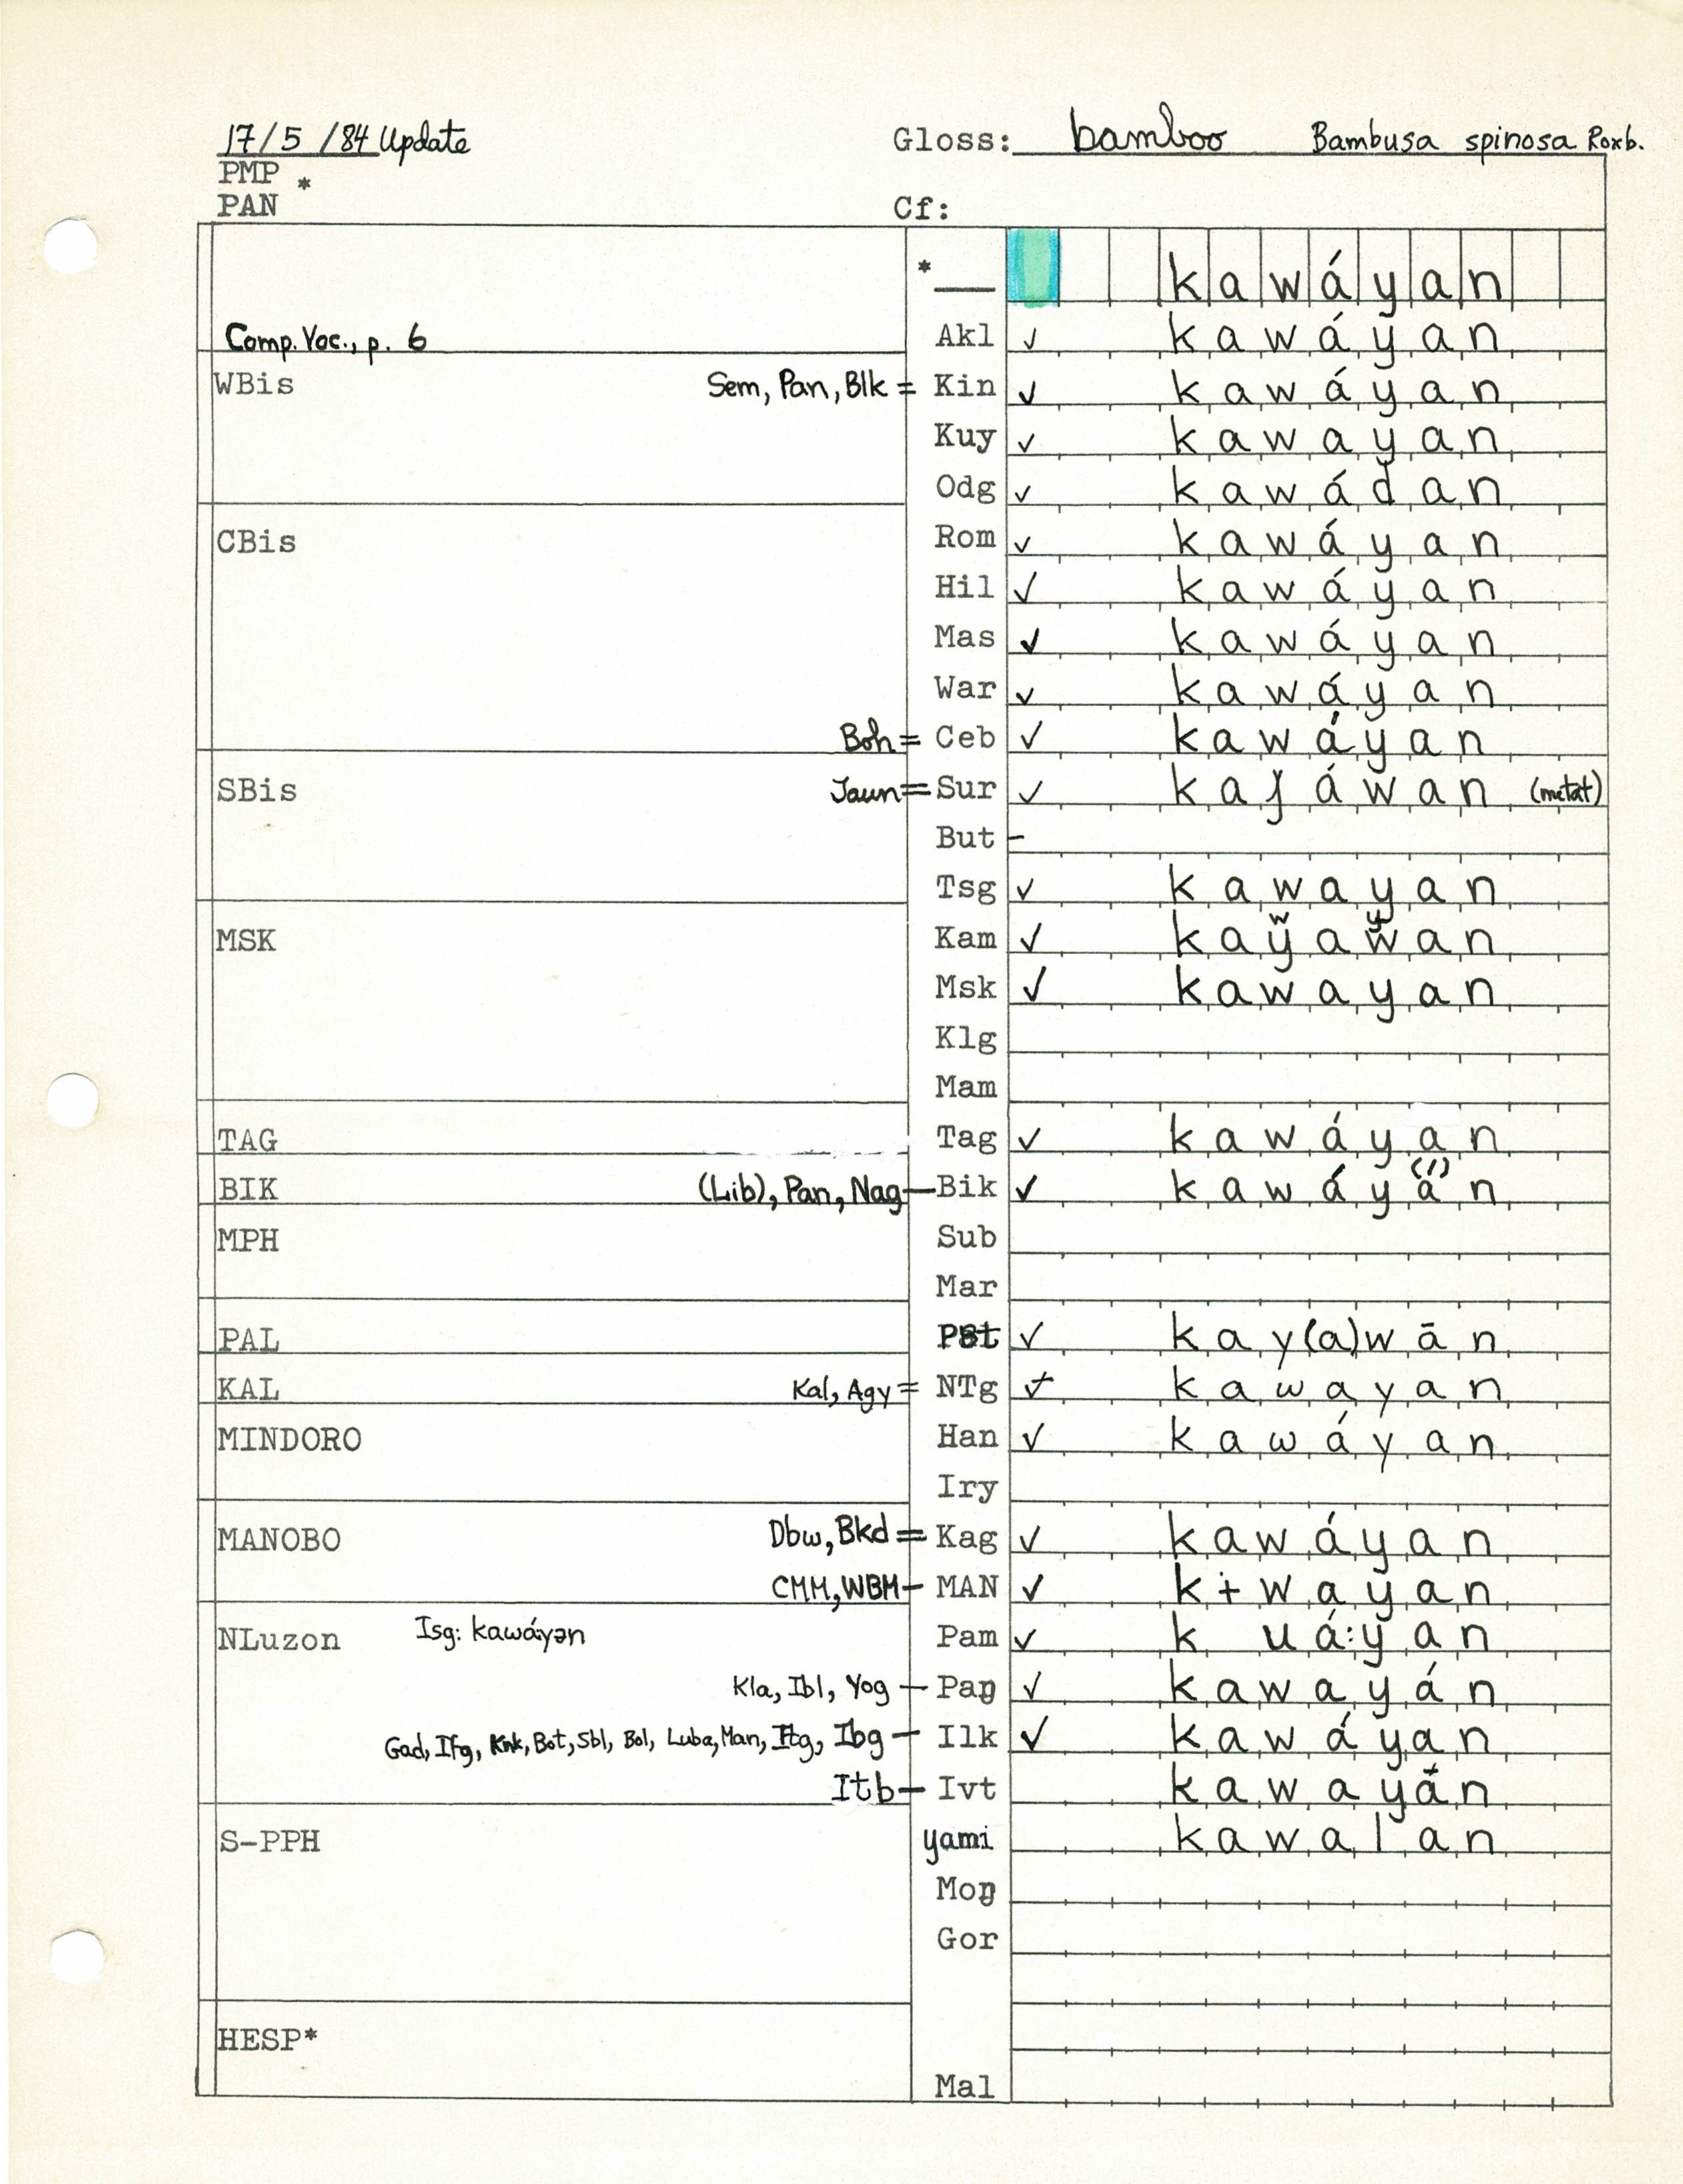 17/5/84 Update Gloss: bamboo Bambusa spinosa Roxb.
PMP *
PAN Cf:
* kawáyan
Comp. Voc., p. 6 Akl ✓ kawáyan
WBis Sem, Pan, Blk = Kin ✓ kawáyan
Kuy ✓ kawayan
Odg ✓ kawádan
Rom ✓ kawáyan
CBis
Hil ✓ kawáyan
Mas ✓ kawáyan
War ✓ kawáyan
Boh = Ceb ✓ kawáyan
SBis Jaun = Sur ✓ kaɟáwan (metat)
But –
Tsg ✓ kawayan
MSK Kam ✓
Msk ✓ kawayan
Klg
Mam
TAG Tag ✓ kawáyan
BIK (Lib), Pan, Nag – Bik ✓ kawáya(´)n
MPH Sub
Mar
PAL ✓ kay(a)wān
KAL Kal, Agy = NTg ✓ kawayan
MINDORO Han ✓ kawáyan
Iry
MANOBO Dbw, Bkd = Kag ✓ kawáyan
CMM, WBM – MAN ✓ kɨwayan
NLuzon Isg: kawáyən Pam ✓ k uá:yan
Kla, Ibl, Yog – Paŋ ✓ kawayán
Gad, Ifg, Knk, Bot, Sbl, Bol, Luba, Man, Itg, Ibg – Ilk ✓ kawáyan
Itb – Ivt kawayán
S-PPH yami kawalan
Moŋ
Gor
HESP*
Mal